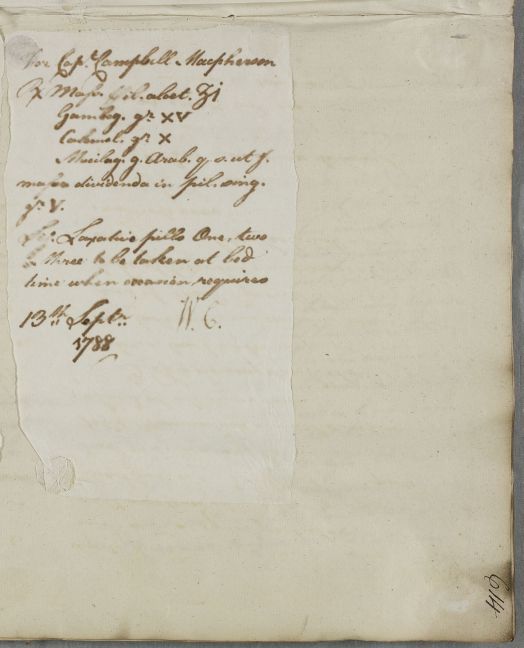 For Cap.t Campbell Macpherson
℞ Mass. Pil. aloet. ʒi
Gambog. gr. XV
Calomel. gr. X
Mucilag. g. Arab. q. s. ut f.
massa dividenda in pil. sing.
gr. V.
Laxative pills One, two
or three to be taken at bed
time when occasion requires
13th Septr. W. C.
1788